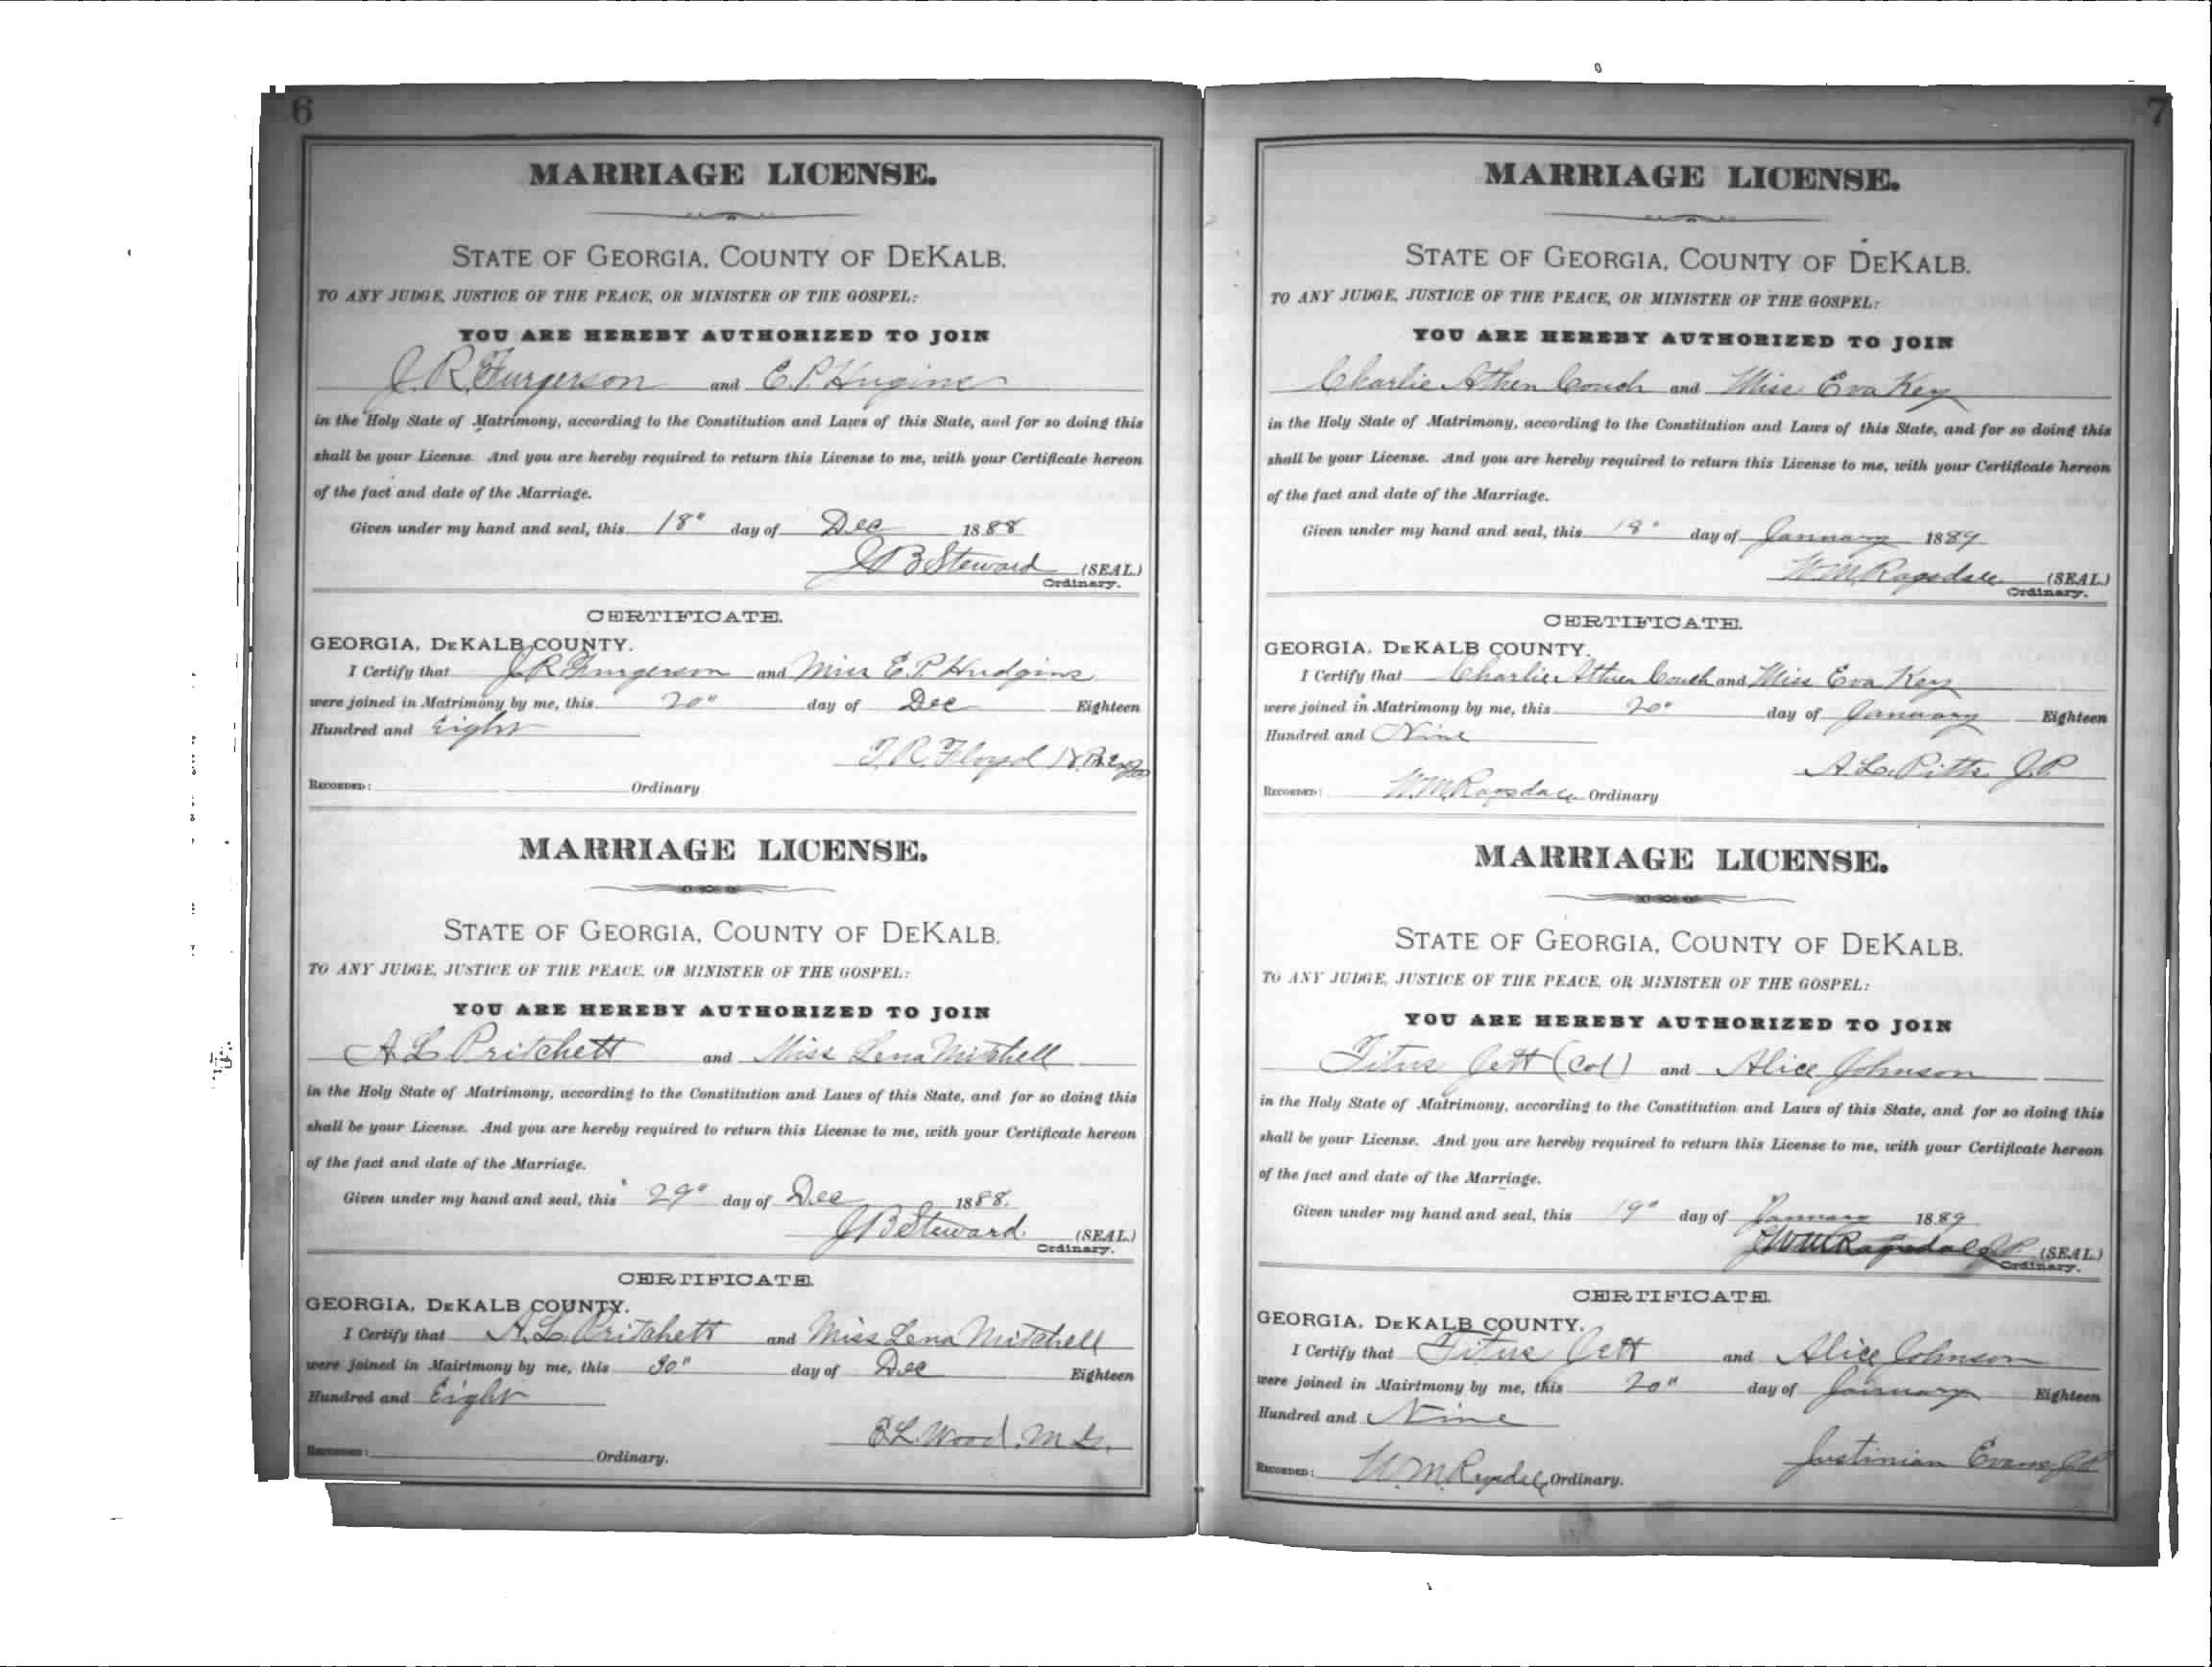 6
MARRIAGE LICENSE.
STATE OF GEORGIA, COUNTY OF DEKALB.
TO ANY JUDGE, JUSTICE OF THE PEACE, OR MINISTER OF THE GOSPEL:
YOU ARE HEREBY AUTHORIZED TO JOIN
J. R. Furgerson and E. P. Hugins
in the Holy State of Matrimony, according to the Constitution and Laws of this State, and for so doing this
shall be your License. And you are hereby required to return this License to me, with your Certificate hereon
of the fact and date of the Marriage.
Given under my hand and seal, this 18" day of Dec 1888
J B Steward (SEAL)
Ordinary.
CERTIFICATE.
GEORGIA, DEKALB COUNTY.
I Certify that J R Furgerson and Miss E. P. Hudgins
were joined in Matrimony by me, this 20" day of Dec Eighteen
Hundred and Eight
T. R. Floyd
RECORDED: Ordinary
MARRIAGE LICENSE.
STATE OF GEORGIA, COUNTY OF DEKALB.
TO ANY JUDGE, JUSTICE OF THE PEACE, OR MINISTER OF THE GOSPEL:
YOU ARE HEREBY AUTHORIZED TO JOIN
A L Pritchett and Miss Lena Mitchell
in the Holy State of Matrimony, according to the Constitution and Laws of this State, and for so doing this
shall be your License. And you are hereby required to return this License to me, with your Certificate hereon
of the fact and date of the Marriage.
Given under my hand and seal, this 29" day of Dec 1888.
J B Steward (SEAL)
Ordinary.
CERTIFICATE.
GEORGIA, DEKALB COUNTY.
I Certify that A. L. Pritchett and Miss Lena Mitchell
were joined in Mairtmony by me, this 30" day of Dec Eighteen
Hundred and Eight
E. L. Wood. M. G.
RECORDED: Ordinary.
7
MARRIAGE LICENSE.
STATE OF GEORGIA, COUNTY OF DEKALB.
TO ANY JUDGE, JUSTICE OF THE PEACE, OR MINISTER OF THE GOSPEL:
YOU ARE HEREBY AUTHORIZED TO JOIN
Charlie Athen Couch and Miss Eva Key
in the Holy State of Matrimony, according to the Constitution and Laws of this State, and for so doing this
shall be your License. And you are hereby required to return this License to me, with your Certificate hereon
of the fact and date of the Marriage.
Given under my hand and seal, this 18" day of January 1889
W. M. Ragsdale (SEAL)
Ordinary.
CERTIFICATE.
GEORGIA, DEKALB COUNTY.
I Certify that Charlie Athen Couch and Miss Eva Key
were joined in Matrimony by me, this 20" day of January Eighteen
Hundred and Nine
A. L. Pitts J. P.
RECORDED: W. M. Ragsdale Ordinary
MARRIAGE LICENSE.
STATE OF GEORGIA, COUNTY OF DEKALB.
TO ANY JUDGE, JUSTICE OF THE PEACE, OR MINISTER OF THE GOSPEL:
YOU ARE HEREBY AUTHORIZED TO JOIN
Titus Jett (Col) and Alice Johnson
in the Holy State of Matrimony, according to the Constitution and Laws of this State, and for so doing this
shall be your License. And you are hereby required to return this License to me, with your Certificate hereon
of the fact and date of the Marriage.
Given under my hand and seal, this 19" day of January 1889
W M Ragsdale (SEAL)
Ordinary.
CERTIFICATE.
GEORGIA, DEKALB COUNTY.
I Certify that Titus Jett and Alice Johnson
were joined in Mairtmony by me, this 20" day of January Eighteen
Hundred and Nine
Justinian Evans J P
RECORDED: W. M. Ragsdale Ordinary.